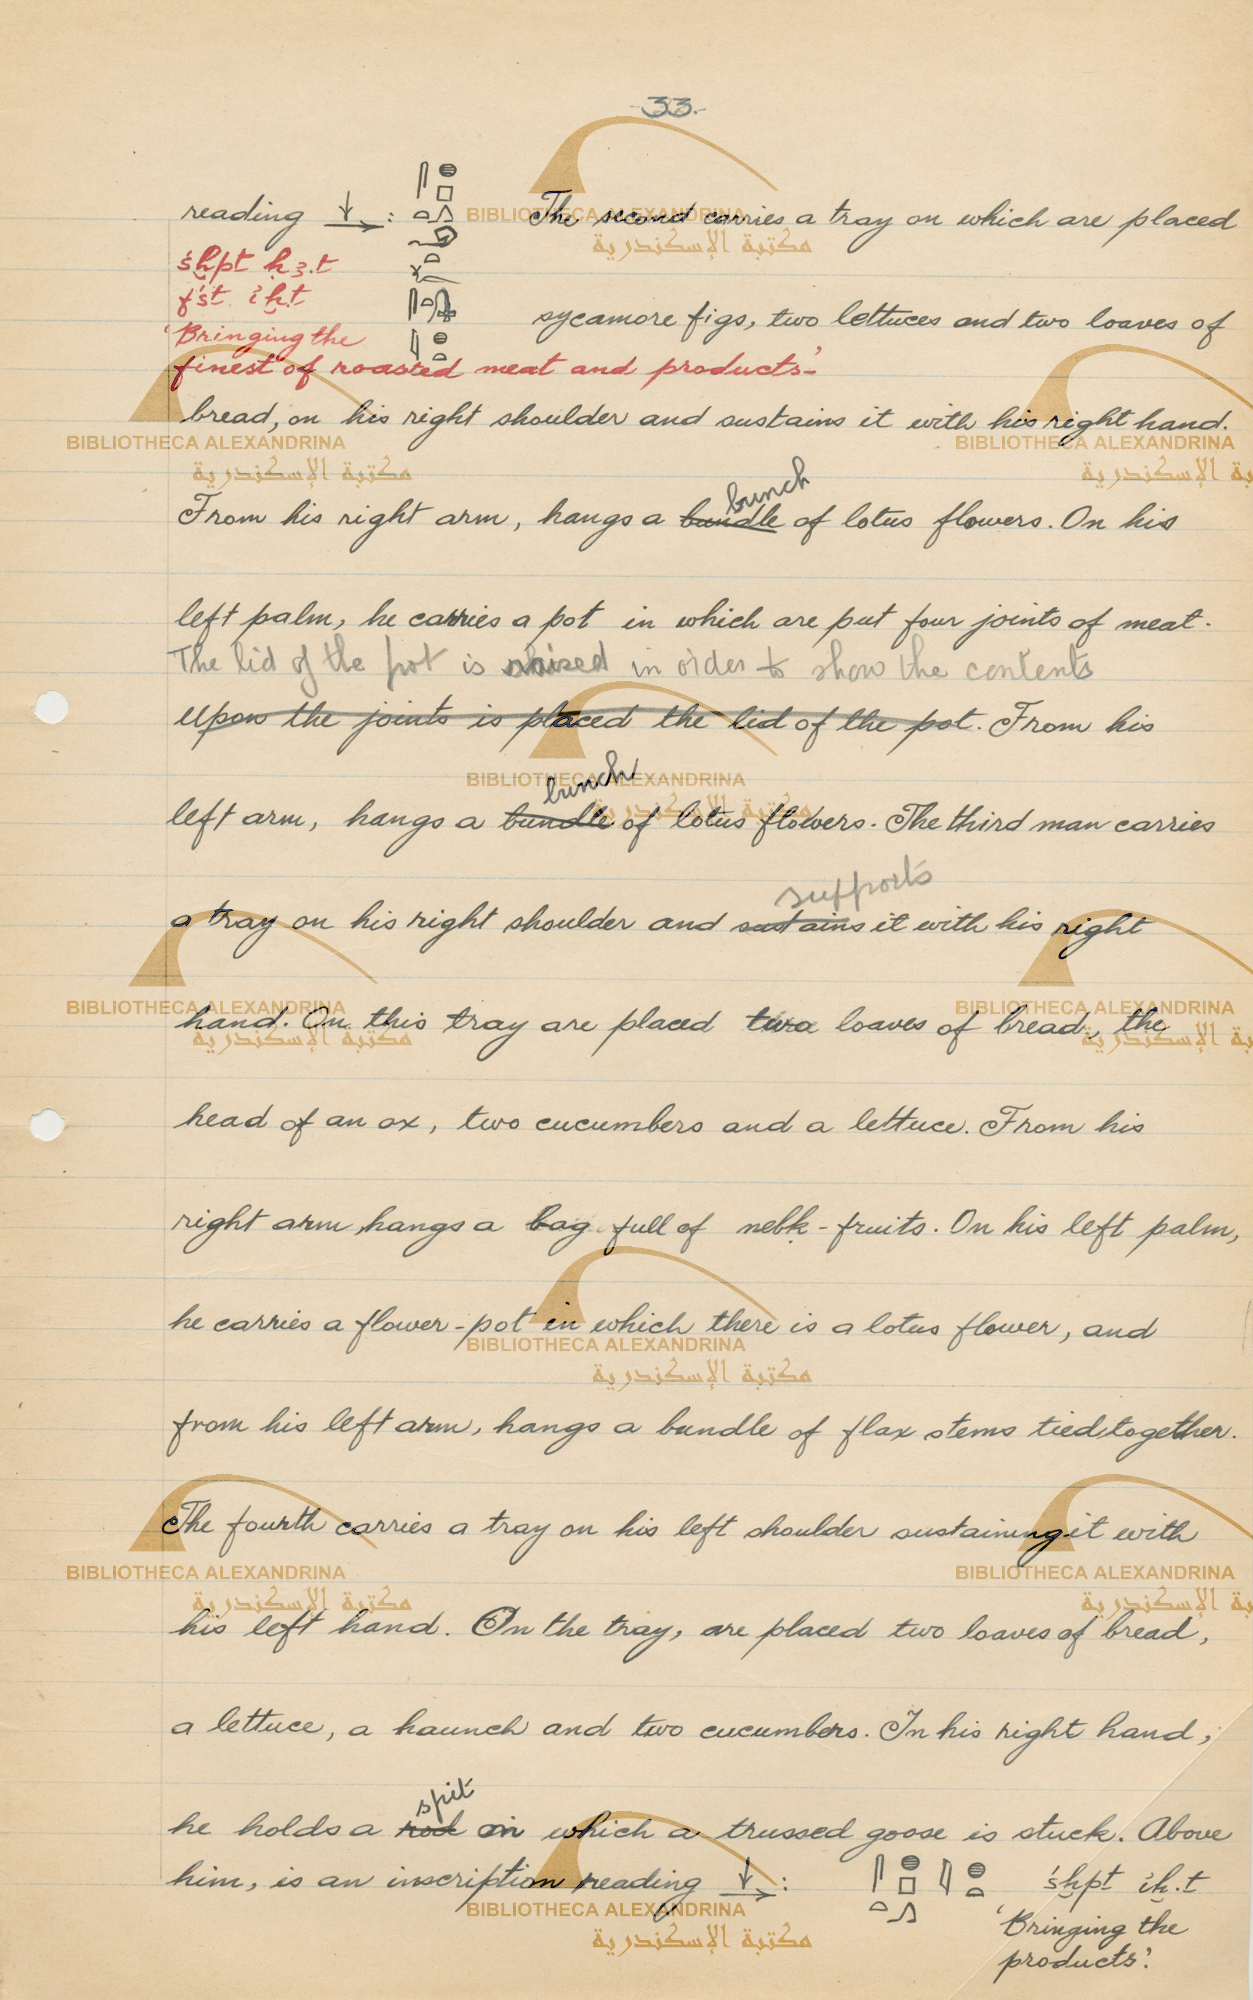 -33-
reading : The second carries a tray on which are placed
śḫpt ḥꜣ.t
fśt iḫt
'Bringing the
sycamore figs, two lettuces and two loaves of
finest of roasted meat and products-'
bread, on his right shoulder and sustains it with his right hand.
bunch
From his right arm, hangs a bundle of lotus flowers. On his
left palm, he carries a pot in which are put four joints of meat.
The lid of the pot is raised in order to show the contents
upon the joints is placed the lid of the pot. From his
bunch
left arm, hangs a bundle of lotus flowers. The third man carries
supports
a tray on his right shoulder and sustains it with his right
hand. On this tray are placed two loaves of bread, the
head of an ox, two cucumbers and a lettuce. From his
right arm, hangs a bag full of nebḳ-fruits. On his left palm,
he carries a flower-pot in which there is a lotus flower, and
from his left arm, hangs a bundle of flax stems tied together.
The fourth carries a tray on his left shoulder sustaining it with
his left hand. On the tray, are placed two loaves of bread,
a lettuce, a haunch and two cucumbers. In his right hand,
spit
he holds a rod on which a trussed goose is stuck. Above
him, is an inscription reading : śḫpt iḫ.t
'Bringing the
products'.
BIBLIOTHECA ALEXANDRINA
مكتبة الإسكندرية